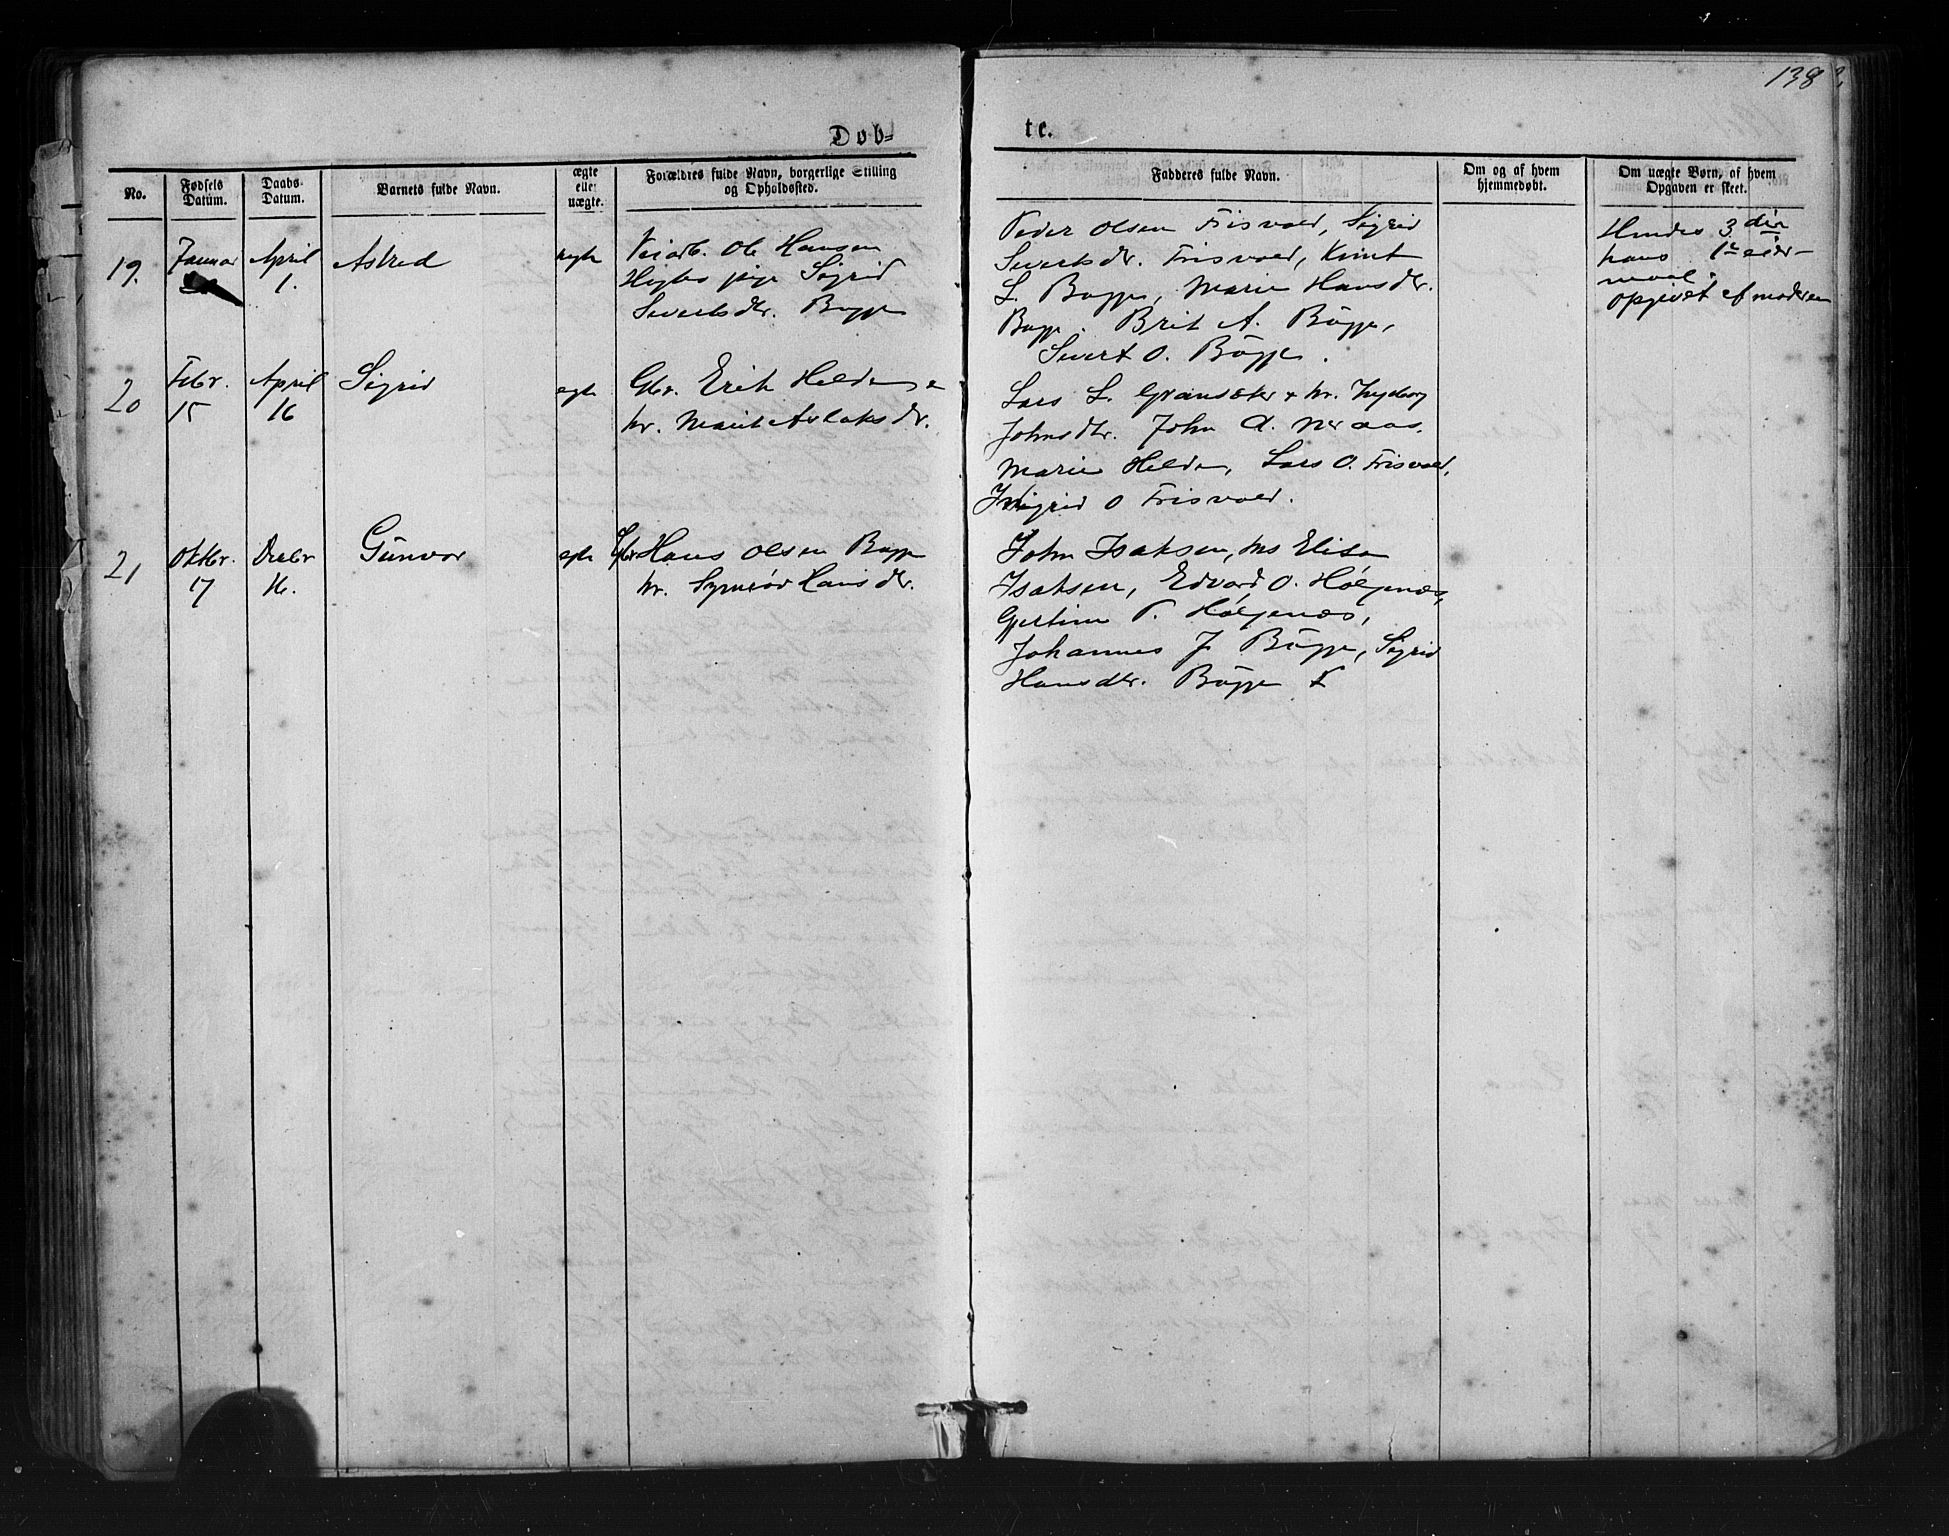 138
Døb=
te.
No.
Fødsels Datum.
Daabs-Datum.
Barnets fulde Navn.
ægte eller uægte.
Forældres fulde Navn, borgerlige Stilling og Opholdssted.
Fadderes fulde Navn.
Om og af hvem hjemmedøbt.
Om uægte Børn, af hvem Opgaven er skeet.
19.
Januar
April
1.
Astred
uegte
Ole Hansen
pige Sigrid
Sivertsdr. Bugge
Peder Olsen Frisvold, Sigrid
Sivertsdr. Frisvold, Knut
L. Bugge, Marie Hansdr.
Bugge. Brit A. Bügge,
Sivert O. Bügge.
Hendes 3die
hans 1ste
opgivet af moderen
20
Febr.
15
April
16
Sigrid
egte
Gbr. Erik Helde
hr. Marit Aslaksdr.
Lars L. Gransæter + hr. Ingeborg
Johnsdtr. John A. Neraas.
Marie Helde, Lars O. Frisvold,
Ingrid O Frisvold.
21
Oktbr.
17
Decbr
16.
Gunvor
egte
Gbr Hans Olsen Bugge
hr. Synnøv Hansdr.
John Isaksen, hs Elisa
Isaksen, Edvard O. Holgenæs,
Gjertine P. Holgenæs,
Johannes J Bügge, Sigrid
Hansdtr. Bügge